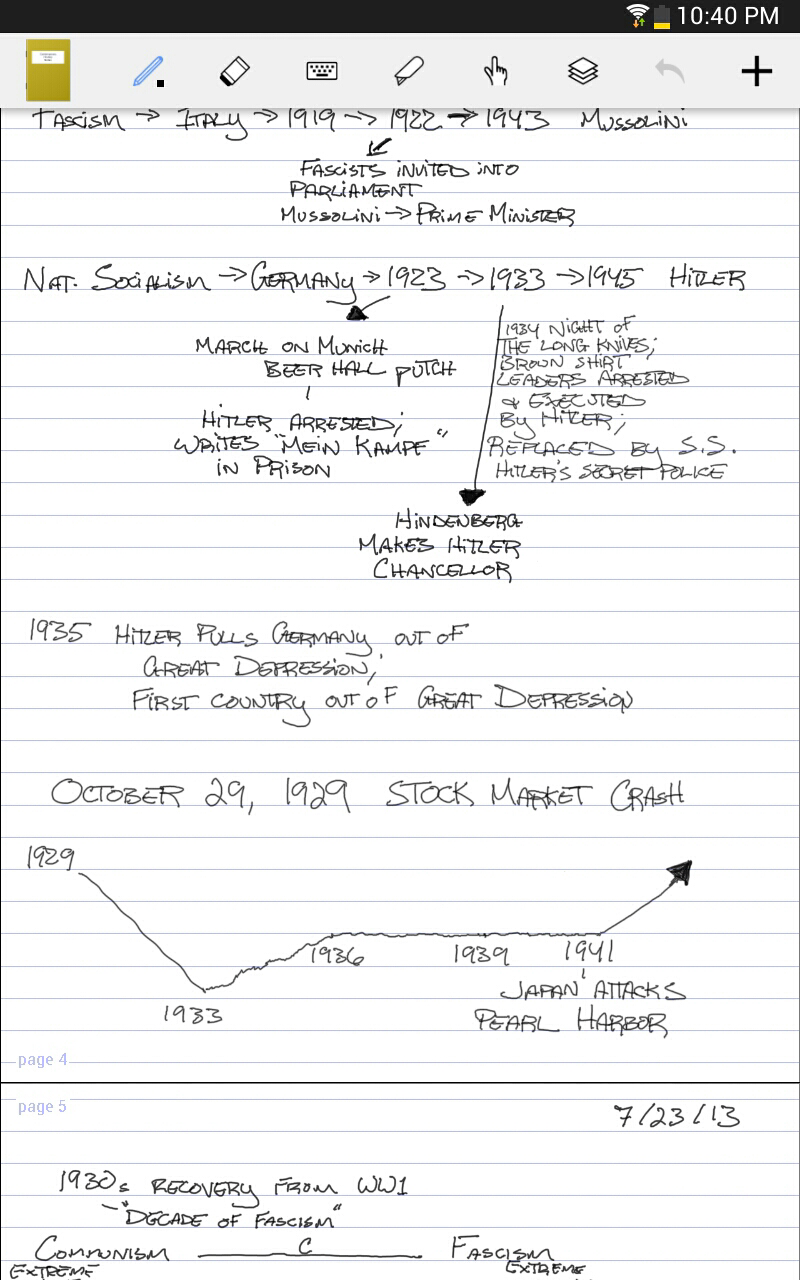 10:40 PM
FASCISM → ITALY → 1919 → 1922 → 1943 MUSSOLINI
FASCISTS INVITED INTO
PARLIAMENT
MUSSOLINI → PRIME MINISTER
NAT. SOCIALISM → GERMANY → 1923 → 1933 → 1945 HITLER
MARCH ON MUNICH
BEER HALL PUTCH
HITLER ARRESTED;
WRITES "MEIN KAMPF"
IN PRISON
1934 NIGHT OF
THE LONG KNIVES;
BROWN SHIRT
LEADERS ARRESTED
& EXECUTED
BY HITLER;
REPLACED BY S.S.
HITLER'S SECRET POLICE
HINDENBERG
MAKES HITLER
CHANCELLOR
1935 HITLER PULLS GERMANY OUT OF
GREAT DEPRESSION;
FIRST COUNTRY OUT OF GREAT DEPRESSION
OCTOBER 29, 1929 STOCK MARKET CRASH
1929
1936 1939 1941
1933
JAPAN ATTACKS
PEARL HARBOR
page 4
page 5
7/23/13
1930s RECOVERY FROM WW1
- "DECADE OF FASCISM"
COMMUNISM C FASCISM
EXTREME EXTREME